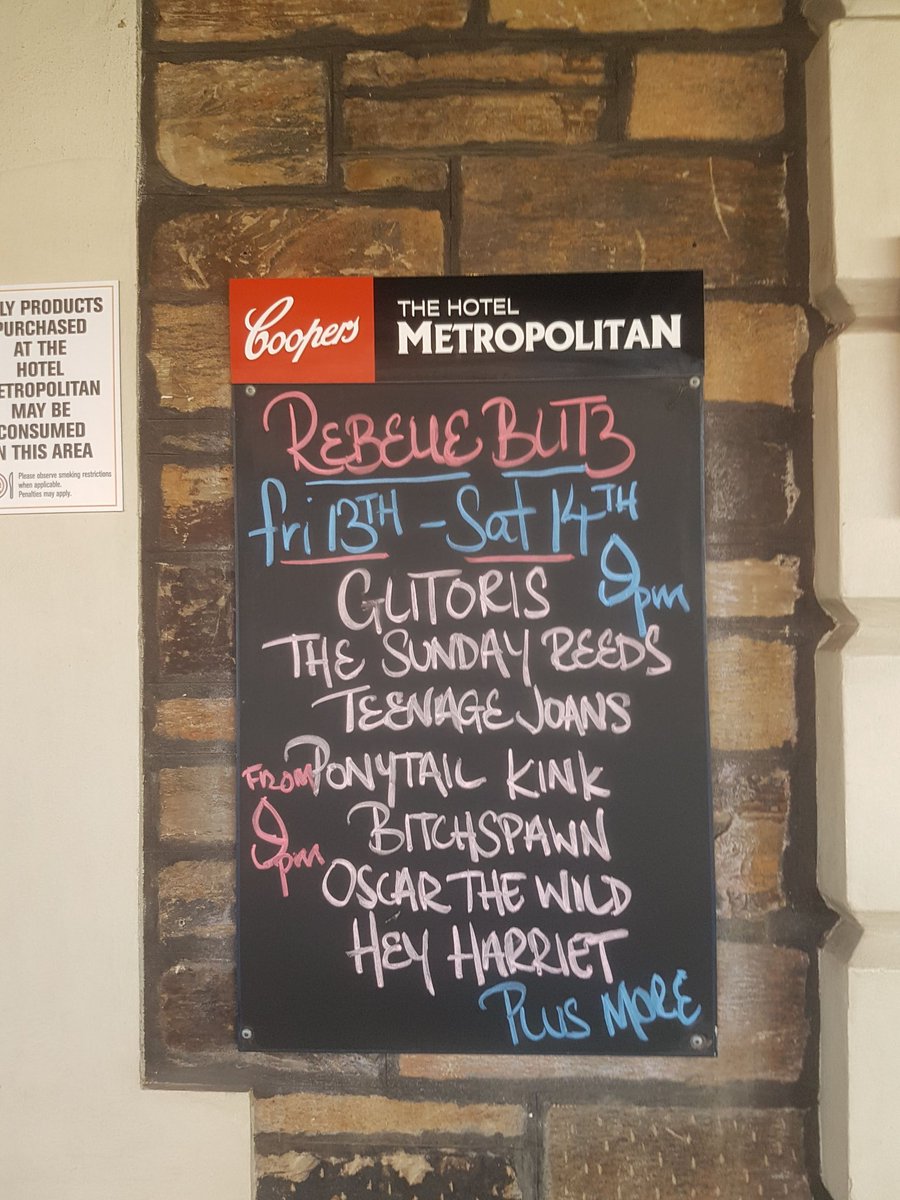 LY PRODUCTS
PURCHASED
AT THE
HOTEL
ETROPOLITAN
MAY BE
CONSUMED
N THIS AREA
Please observe smoking restrictions
when applicable.
Penalties may apply.
Coopers
THE HOTEL
METROPOLITAN
REBELLE BLITZ
fri 13TH - Sat 14TH
9pm
GLITORIS
THE SUNDAY REEDS
TEENAGE JOANS
PONYTAIL KINK
FROM
9pm
BITCHSPAWN
OSCAR THE WILD
HEY HARRIET
PLUS MORE